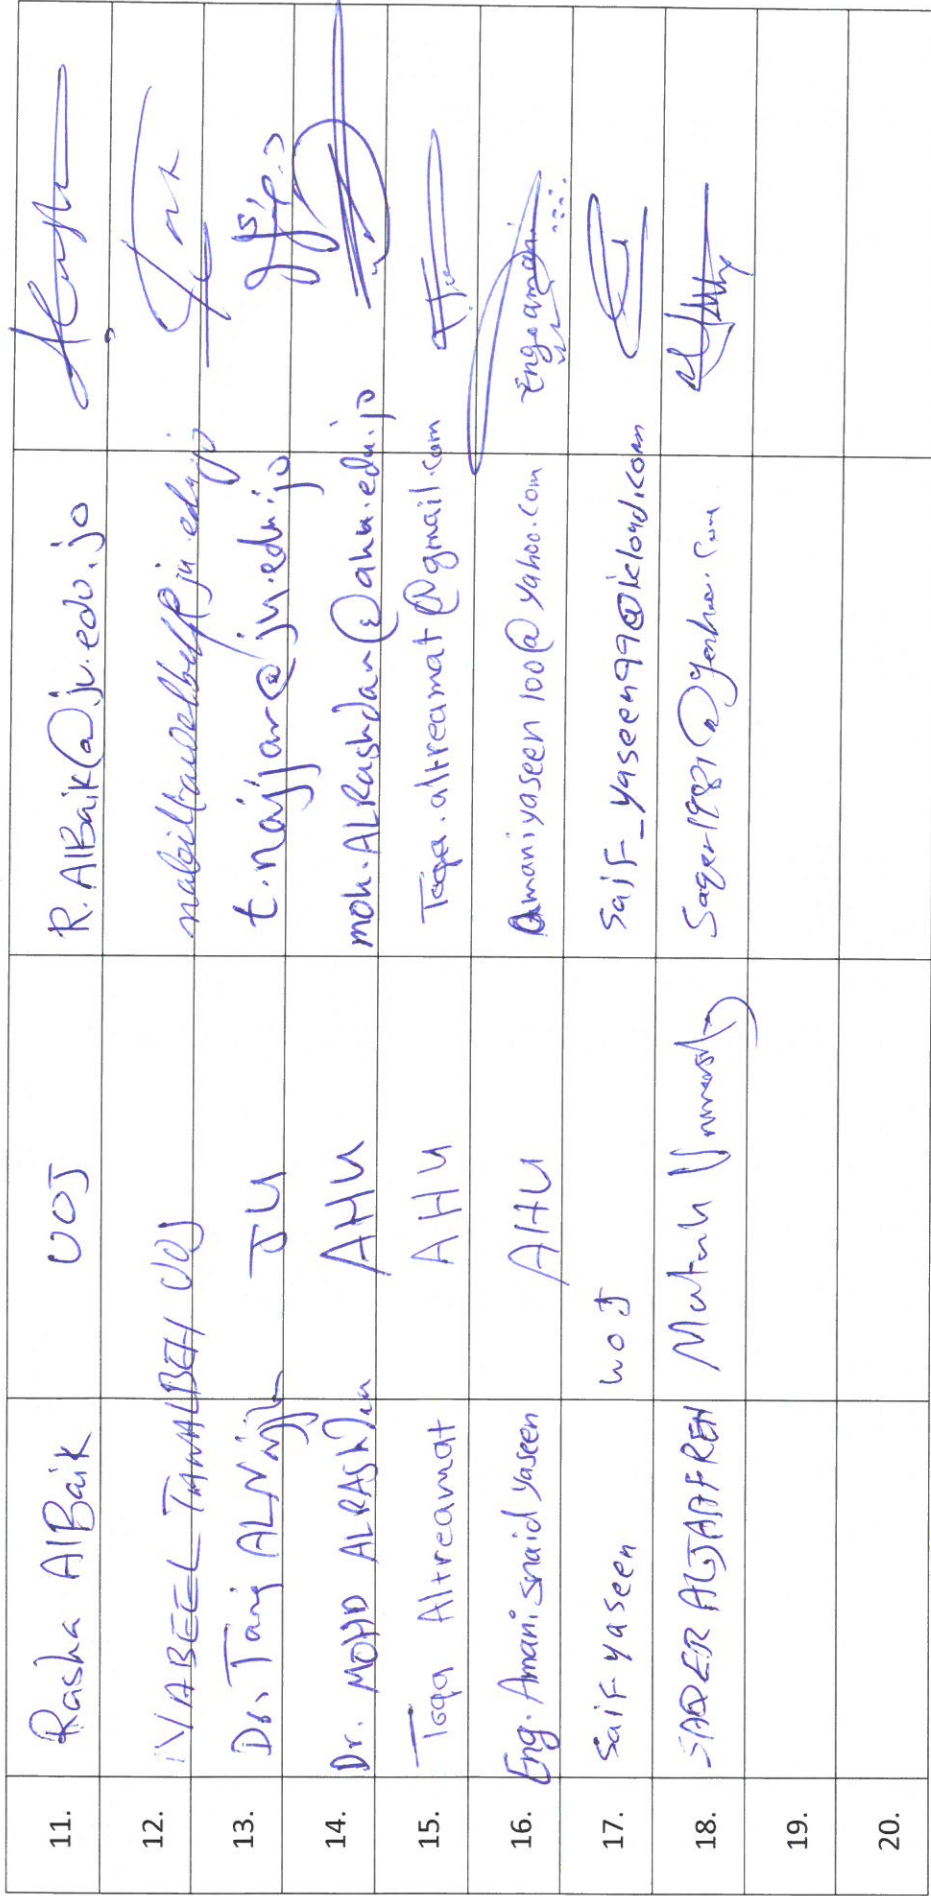 11. Rasha AlBaik UOJ R.AlBaik@ju.edu.jo
12. NABEEL TAWALBEH UOJ
13. Dr. Tariq ALNajjar JU t.najjar@ju.edu.jo
14. Dr. MOHD ALRASHDan AHU moh.ALRashdan@ahu.edu.jo
15. Toqa Altreamat AHU Toqa.altreamat@gmail.com
16. Eng. Amani snaid yaseen AHU Amaniyaseen100@yahoo.com Eng.amani
17. SaiF yaseen UOJ SaiF_yaseen99@icloud.com
18. SAQER ALJAAFREH Mutah University Saqer1981@yahoo.com
19.
20.